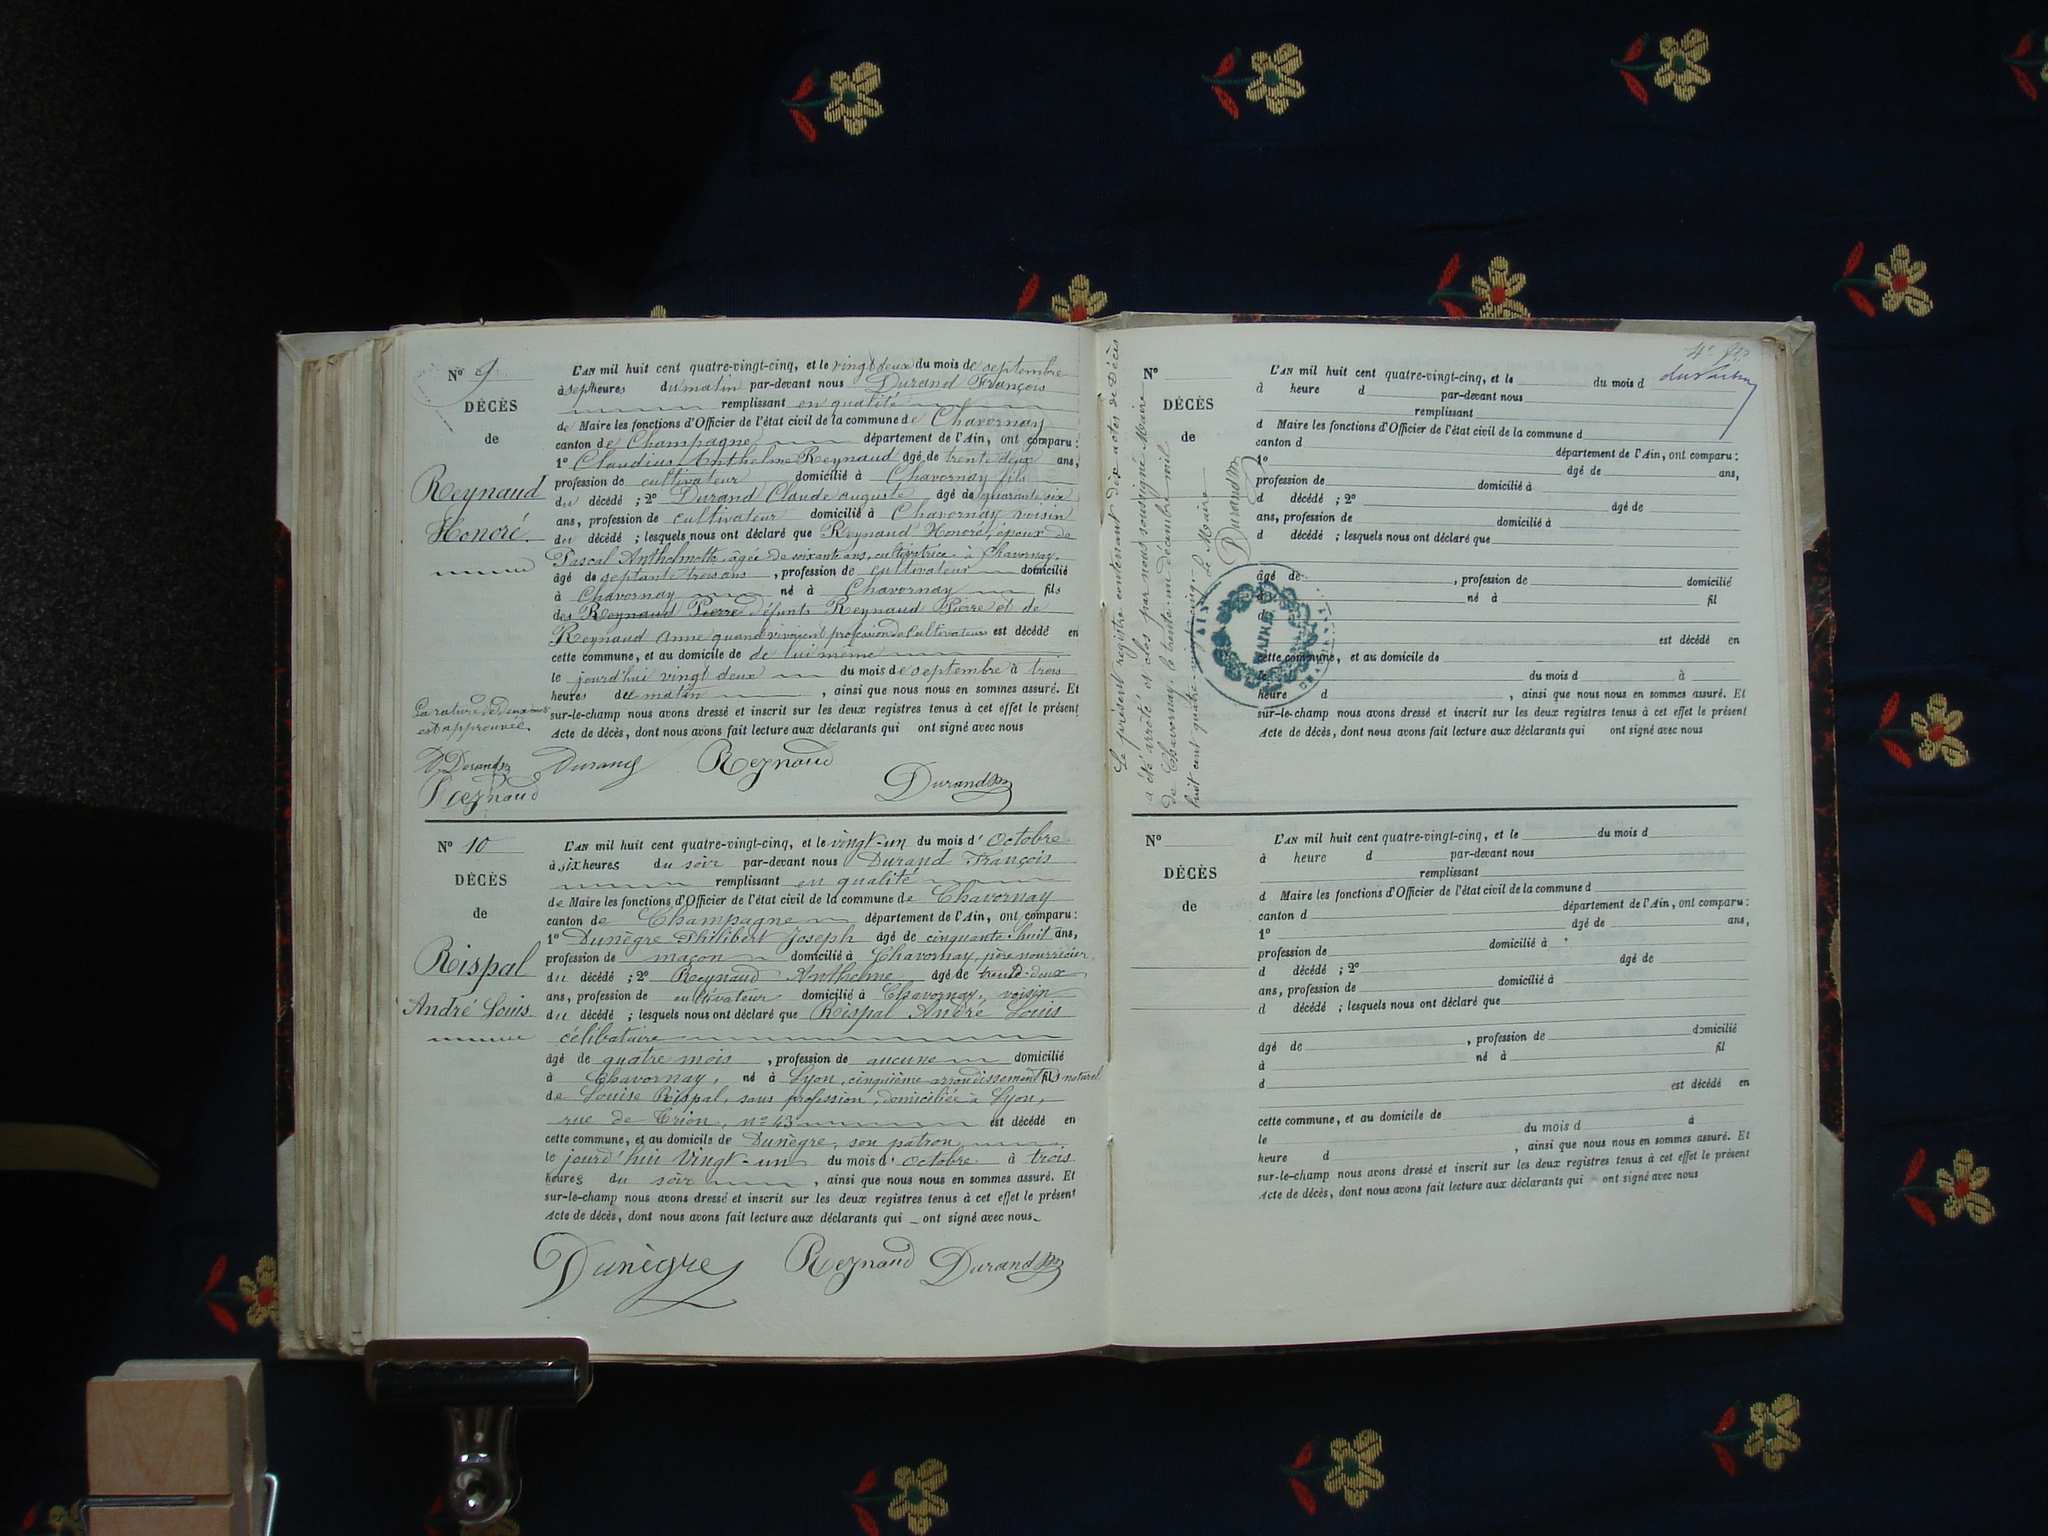 N° 9
DÉCÈS
de
Reynaud
Honoré
L'AN mil huit cent quatre-vingt-cinq, et le vingt deux du mois de septembre
à sept heures du matin par-devant nous Durand François
remplissant en qualité
de Maire les fonctions d'Officier de l'état civil de la commune de Chavornay
canton de Champagne département de l'Ain, ont comparu :
1° Claudius Anthelme Reynaud âgé de trente deux ans,
profession de cultivateur domicilié à Chavornay fils
du décédé ; 2° Durand Claude auguste âgé de quarante six
ans, profession de cultivateur domicilié à Chavornay voisin
du décédé ; lesquels nous ont déclaré que Reynaud Honoré, époux de
Pascal Anthelmette âgée de soixante ans, cultivatrice à Chavornay.
âgé de septante trois ans, profession de cultivateur domicilié
à Chavornay né à Chavornay fils
des Reynaud Pierre défunts Reynaud Pierre et de
Reynaud Anne quand vivaient profession de cultivateurs est décédé en
cette commune, et au domicile de de lui même
le jourd'hui vingt deux du mois de septembre à trois
heures du matin, ainsi que nous nous en sommes assuré. Et
sur-le-champ nous avons dressé et inscrit sur les deux registres tenus à cet effet le présent
Acte de décès, dont nous avons fait lecture aux déclarants qui ont signé avec nous
La rature de deux mots
est approuvée.
Durand
Reynaud
Durand Reynaud
Durand
N° 10
DÉCÈS
de
Rispal
André Louis
L'AN mil huit cent quatre-vingt-cinq, et le vingt-un du mois d'Octobre
à six heures du soir par-devant nous Durand François
remplissant en qualité
de Maire les fonctions d'Officier de l'état civil de la commune de Chavornay
canton de Champagne département de l'Ain, ont comparu :
1° Dunègre Philibert Joseph âgé de cinquante-huit ans,
profession de maçon domicilié à Chavornay, père nourricier
du décédé ; 2° Reynaud Anthelme âgé de trente-deux
ans, profession de cultivateur domicilié à Chavornay, voisin
du décédé ; lesquels nous ont déclaré que Rispal André Louis
célibataire
âgé de quatre mois, profession de aucune domicilié
à Chavornay, né à Lyon, cinquième arrondissement fils naturel
de Louise Rispal, sans profession, domiciliée à Lyon,
rue de Trion, n° 43 est décédé en
cette commune, et au domicile de Dunègre, son patron,
le jourd'hui vingt-un du mois d'octobre à trois
heures du soir, ainsi que nous nous en sommes assuré. Et
sur-le-champ nous avons dressé et inscrit sur les deux registres tenus à cet effet le présent
Acte de décès, dont nous avons fait lecture aux déclarants qui ont signé avec nous
Dunègre Reynaud Durand
Le présent registre contenant dix actes de Décès
a été arrêté et clos par nous soussigné Maire
de Chavornay, le trente-un décembre mil
huit cent quatre-vingt-cinq. Le Maire
Durand
MAIRIE
AIN
N°
DÉCÈS
de
L'AN mil huit cent quatre-vingt-cinq, et le du mois d
à heure d par-devant nous
remplissant
d Maire les fonctions d'Officier de l'état civil de la commune d
canton d département de l'Ain, ont comparu :
1° âgé de ans,
profession de domicilié à
d décédé ; 2° âgé de
ans, profession de domicilié à
d décédé ; lesquels nous ont déclaré que
âgé de , profession de domicilié
né à fil
est décédé en
cette commune, et au domicile de
le du mois d à
heure d , ainsi que nous nous en sommes assuré. Et
sur-le-champ nous avons dressé et inscrit sur les deux registres tenus à cet effet le présent
Acte de décès, dont nous avons fait lecture aux déclarants qui ont signé avec nous
N°
DÉCÈS
de
L'AN mil huit cent quatre-vingt-cinq, et le du mois d
à heure d par-devant nous
remplissant
d Maire les fonctions d'Officier de l'état civil de la commune d
canton d département de l'Ain, ont comparu :
1° âgé de ans,
profession de domicilié à
d décédé ; 2° âgé de
ans, profession de domicilié à
d décédé ; lesquels nous ont déclaré que
âgé de , profession de domicilié
à né à fil
d est décédé en
cette commune, et au domicile de
le du mois d à
heure d , ainsi que nous nous en sommes assuré. Et
sur-le-champ nous avons dressé et inscrit sur les deux registres tenus à cet effet le présent
Acte de décès, dont nous avons fait lecture aux déclarants qui ont signé avec nous